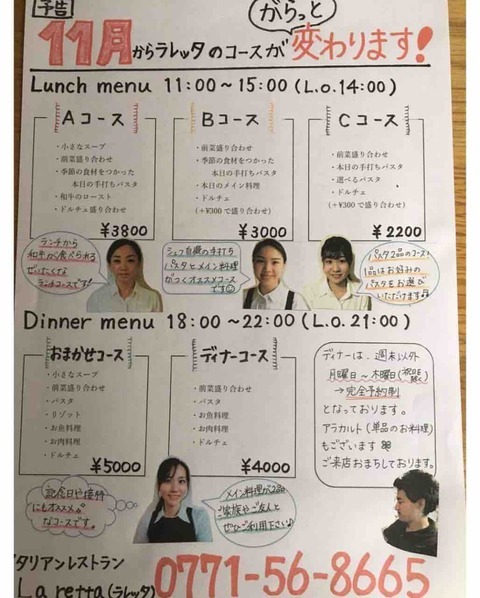 予告
がらっと
11月からラレッタのコースが変わります!
Lunch menu 11:00～15:00 (L.o.14:00)
Aコース
・小さなスープ
・前菜盛り合わせ
・季節の食材をつかった
本日の手打ちパスタ
・和牛のロースト
・ドルチェ盛り合わせ
¥3800
Bコース
・前菜盛り合わせ
・季節の食材をつかった
本日の手打ちパスタ
・本日のメイン料理
・ドルチェ
(+¥300で盛り合わせ)
¥3000
Cコース
・前菜盛り合わせ
・本日の手打ちパスタ
・選べるパスタ
・ドルチェ
(+¥300で盛り合わせ)
¥2200
ランチから
和牛が食べられる
ぜいたくな
ランチコースです!
シェフ自慢の手打ち
パスタとメイン料理
がつくオススメコース
です
パスタ2品のコース
1品はお好みの
パスタをお選び
いただけます♫
Dinner menu 18:00～22:00 (L.o.21:00)
おまかせコース
・小さなスープ
・前菜盛り合わせ
・パスタ
・リゾット
・お魚料理
・お肉料理
・ドルチェ
¥5000
ディナーコース
・前菜盛り合わせ
・パスタ
・お魚料理
・お肉料理
・ドルチェ
¥4000
ディナーは、週末以外
月曜日～木曜日(祝日を除く)
→完全予約制
となっております。
アラカルト(単品のお料理)
もございます
ご来店おまちしております。
記念日や接待
にもオススメ
なコースです。
メイン料理が2品
ご家族やご友人と
ぜひご利用下さい♪
タリアンレストラン
La retta(ラレッタ) 0771-56-8665